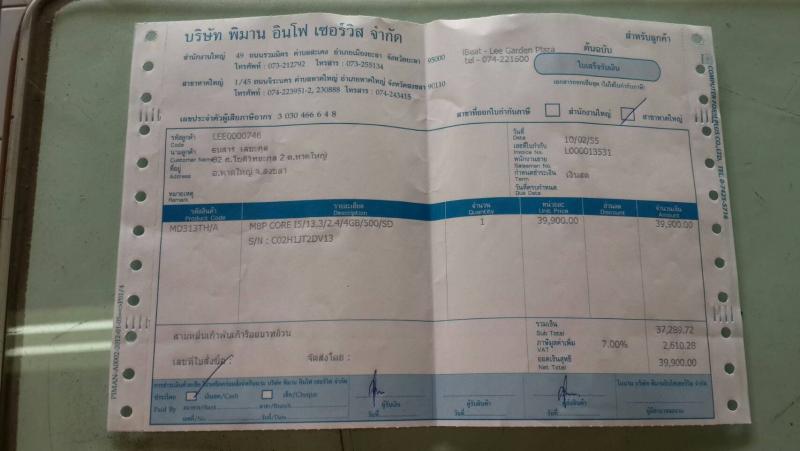 บริษัท พิมาน อินโฟ เซอร์วิส จำกัด
สำนักงานใหญ่ 49 ถนนรวมมิตร ตำบลสะเตง อำเภอเมืองยะลา จังหวัดยะลา 95000
โทรศัพท์ : 073-212792 โทรสาร : 073-255134
สาขาหาดใหญ่ 1/45 ถนนจิระนคร ตำบลหาดใหญ่ อำเภอหาดใหญ่ จังหวัดสงขลา 90110
โทรศัพท์ : 074-223951-2, 230888 โทรสาร : 074-243415
เลขประจำตัวผู้เสียภาษีอากร 3 030 466 6 4 8
iBeat - Lee Garden Plaza
tel - 074-221600
ต้นฉบับ
สำหรับลูกค้า
ใบเสร็จรับเงิน
เอกสารออกเป็นชุด (ไม่ใช่ใบกำกับภาษี)
สาขาที่ออกใบกำกับภาษี สำนักงานใหญ่ สาขาหาดใหญ่
รหัสลูกค้า LEE0000746
Code
นามลูกค้า
Customer Name
ที่อยู่ อ.หาดใหญ่ จ.สงขลา
Address
หมายเหตุ
Remark
วันที่ 10/02/55
Date
เลขที่ใบกำกับ L000013531
Invoice No.
พนักงานขาย
Salesman No.
กำหนดชำระเงิน เงินสด
Term
วันที่ครบกำหนด
Due Date
รหัสสินค้า รายละเอียด จำนวน หน่วยละ ส่วนลด จำนวนเงิน
Product Code Description Quantity Unit Price Discount Amount
MD313TH/A MBP CORE I5/13.3/2.4/4GB/500/SD 1 39,900.00 39,900.00
S/N : C02H1JT2DV13
สามหมื่นเก้าพันเก้าร้อยบาทถ้วน
รวมเงิน 37,289.72
Sub Total
ภาษีมูลค่าเพิ่ม 7.00% 2,610.28
VAT
ยอดเงินสุทธิ 39,900.00
Net Total
เลขที่ใบสั่งซื้อ : จัดส่งโดย :
ชำระโดย เงินสด/Cash เช็ค/Cheque
Paid By ธนาคาร/Bank สาขา/Branch
เลขที่/No. วันที่/Date
ผู้รับเงิน
วันที่
ผู้รับสินค้า
วันที่
ผู้ส่งสินค้า
วันที่
ในนาม บริษัท พิมาน อินโฟ เซอร์วิส จำกัด
ผู้มีอำนาจลงนาม